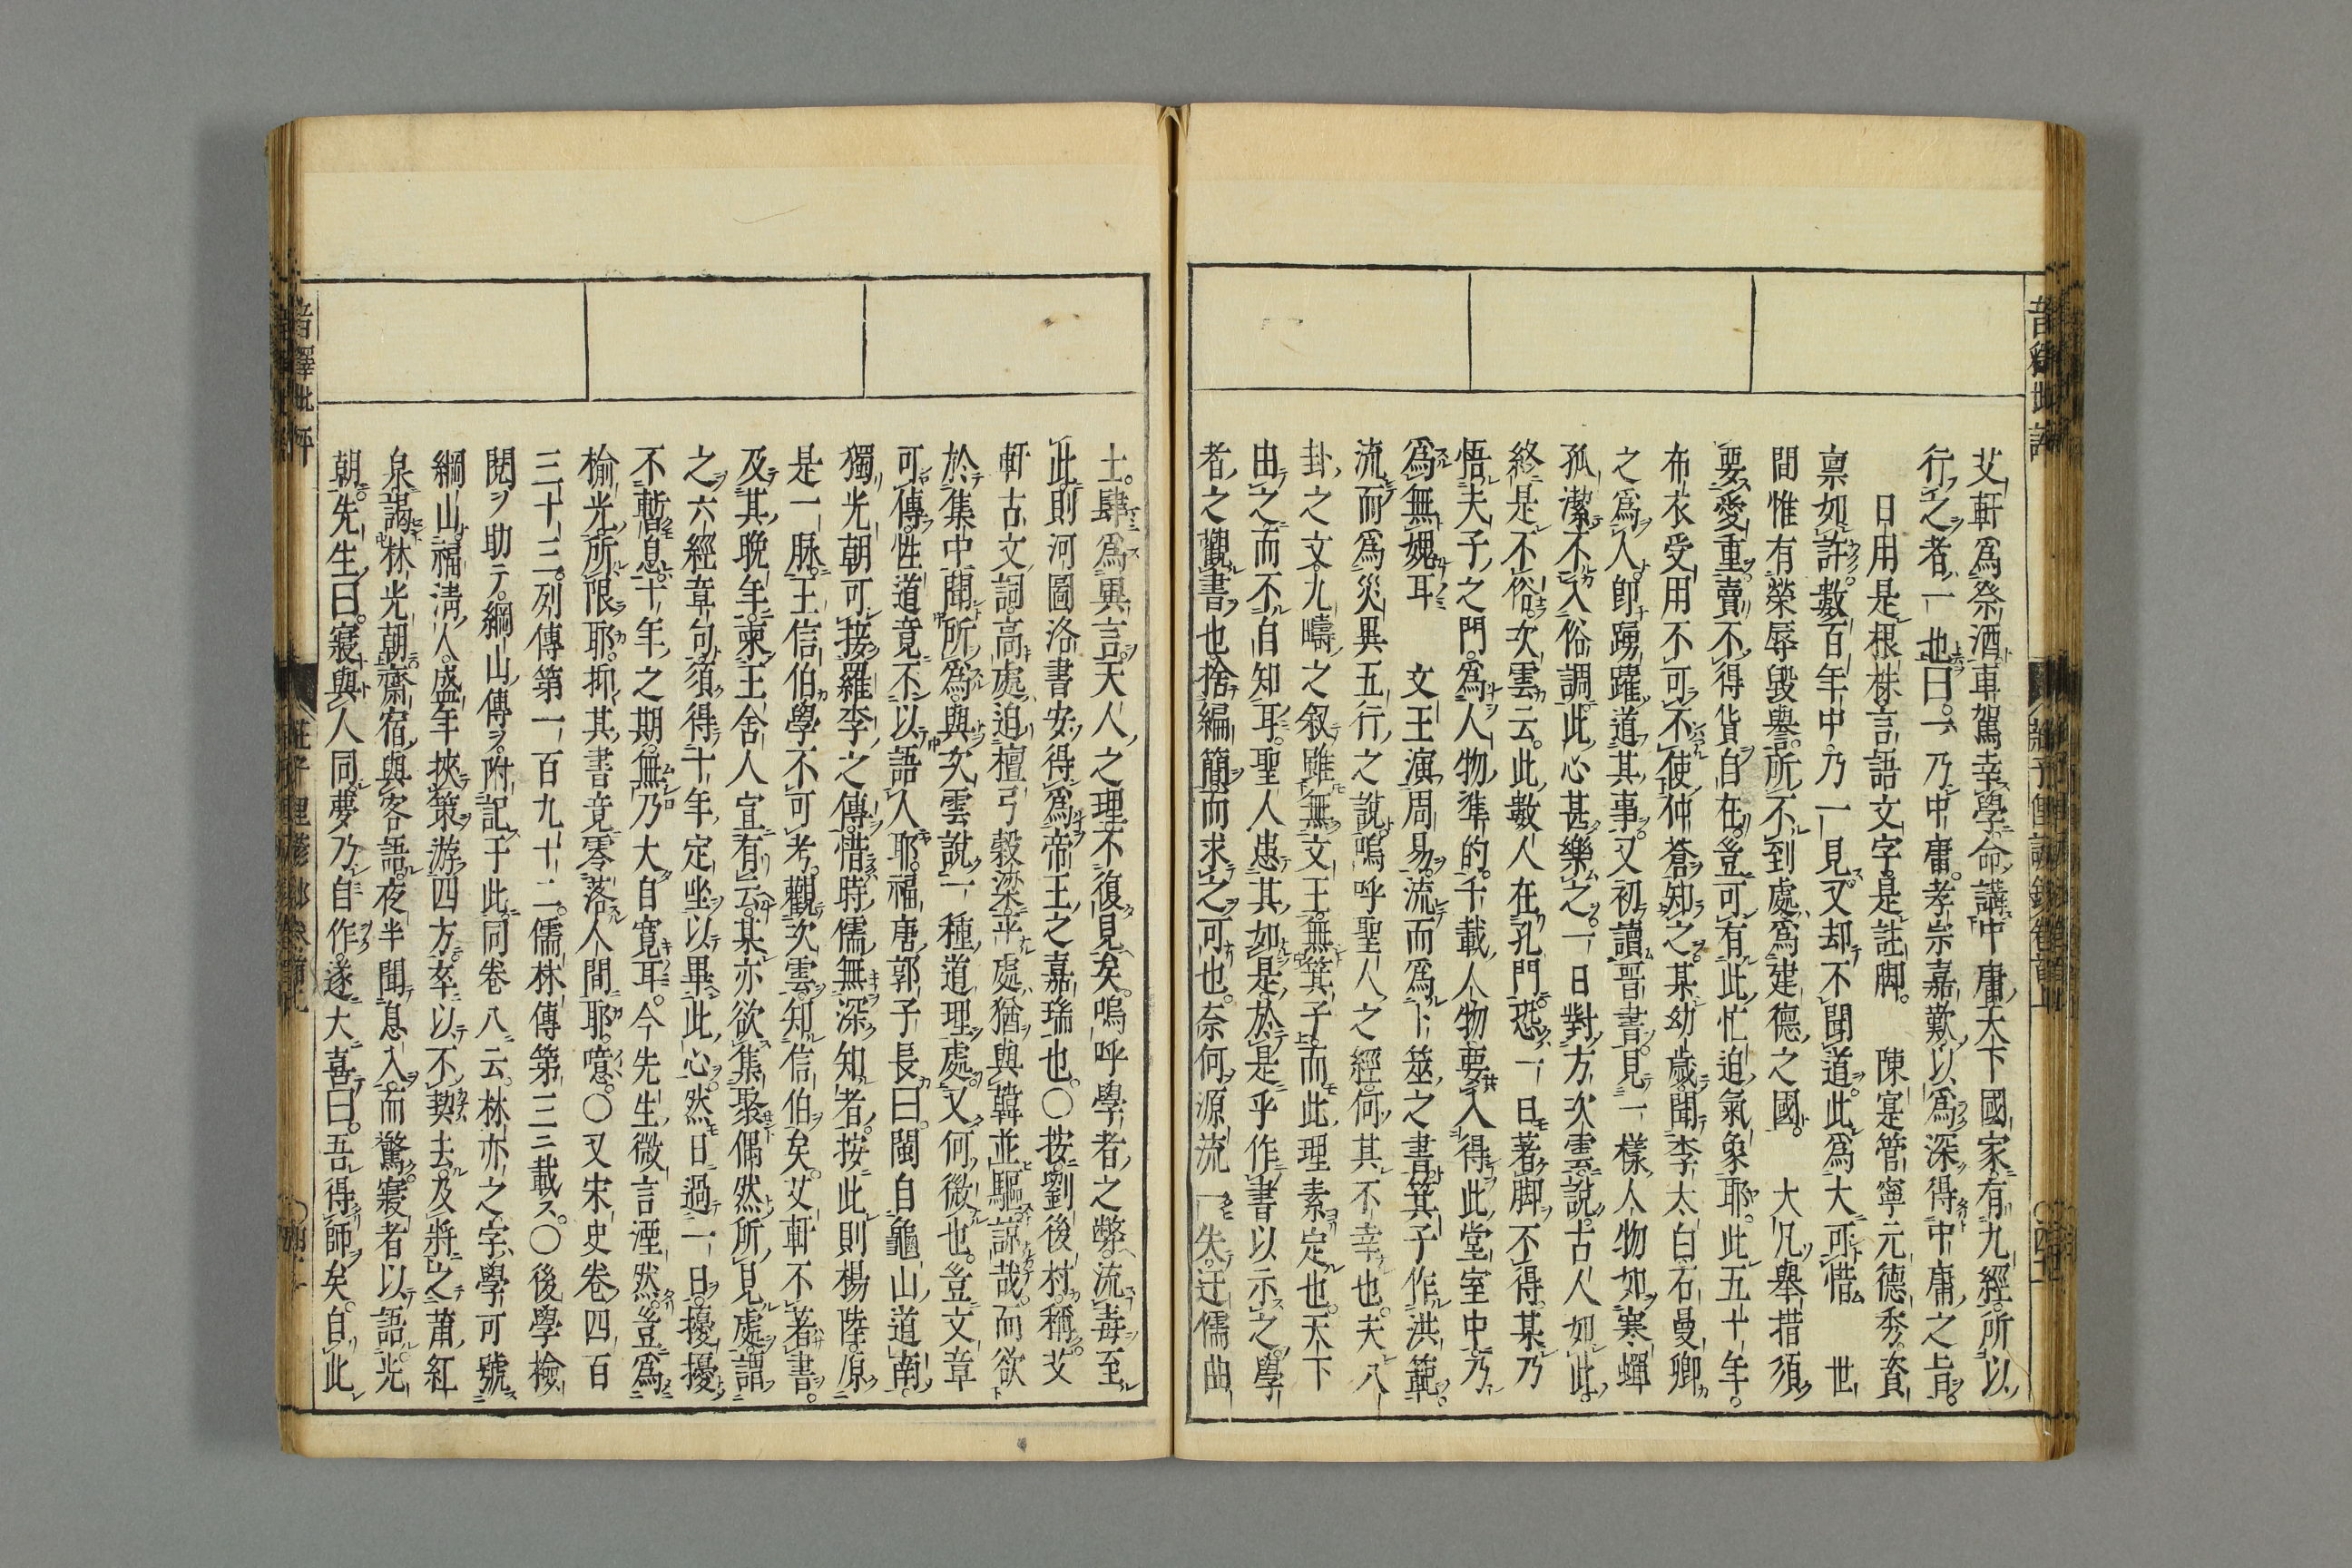 艾軒爲祭酒車駕幸學命講中庸天下國家有九經所以
行之者一也曰一乃中庸孝宗嘉歎以爲深得中庸之旨
日用是根株言語文字是註脚。　陳寔管寧元德秀資
稟如許數百年中乃一見又却不聞道此爲大可惜　世
間惟有榮辱毀譽所不到處爲建德之國　大凡舉措須
要愛重賣不得貨自在豈可有此忙迫氣象耶此五十年
布衣受用不可不使仲蒼知之某幼歲聞李太白石曼卿
之爲人卽踴躍道其事又初讀晉書見一樣人物如寒蟬
孤潔不入俗調此心甚樂之一日對方次雲説古人如此
終是不俗次雲云此數人在孔門恐一日著脚不得某乃
悟夫子之門爲人物準的千載人物要入得此堂室中乃
爲無媿耳　文王演周易流而爲卜筮之書箕子作洪範
流而爲災異五行之說嗚呼聖人之經何其不幸也夫八
卦之文九疇之叙雖無文王無箕子而此理素定也天下
由之而不自知耳聖人患其如是於是乎作書以示之學
者之觀書也捨編簡而求之可也奈何源流一失迂儒曲
士肆爲異言天人之理不復見矣嗚呼學者之弊流毒至
此則河圖洛書安得爲帝王之嘉瑞也○按劉後村稱艾
軒古文詞高處迫檀弓穀梁平處猶與韓並驅諒哉而欲
於集中聞所爲與次雲說一種道理處又何微也豈文章
可傳性道竟不以語人耶福唐郭子長曰閩自龜山道南
獨光朝可接羅李之傳惜時儒無深知者按此則楊陸原
是一脉王信伯學不可考觀次雲知信伯矣艾軒不著書
及其晩年柬王舍人宣有云某亦欲集聚偶然所見處謂
之六經章句須得十年定坐以畢此心然日過一日擾擾
不暫息十年之期無乃大自寬耳今先生微言湮然豈爲
榆光所限耶抑其書竟零落人間耶噫○又宋史卷四百
三十三列傳第一百九十二儒林傳第三ニ載ス○後學檢
閱ヲ助テ綱山傳ヲ附記于此同卷八云林亦之字學可號
綱山福淸人盛年挾策游四方卒以不契去及將之莆紅
泉謁林光朝齋宿與客語夜半聞息入而驚寢者以語光
朝先生曰寢與人同夢乃自作遂大喜曰吾得師矣自此